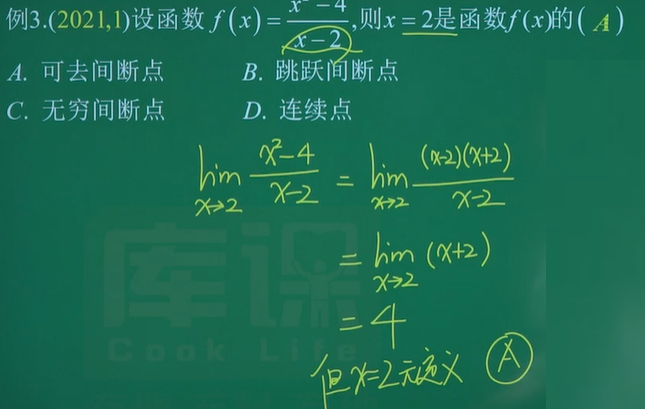 例3.(2021,1)设函数 f(x)=x²-4/x-2,则x=2是函数f(x)的( A )
A. 可去间断点 B. 跳跃间断点
C. 无穷间断点 D. 连续点
lim x→2 x²-4/x-2 = lim x→2 (x-2)(x+2)/x-2
= lim x→2 (x+2)
= 4
但x=2无定义 A
库课
Cook Life